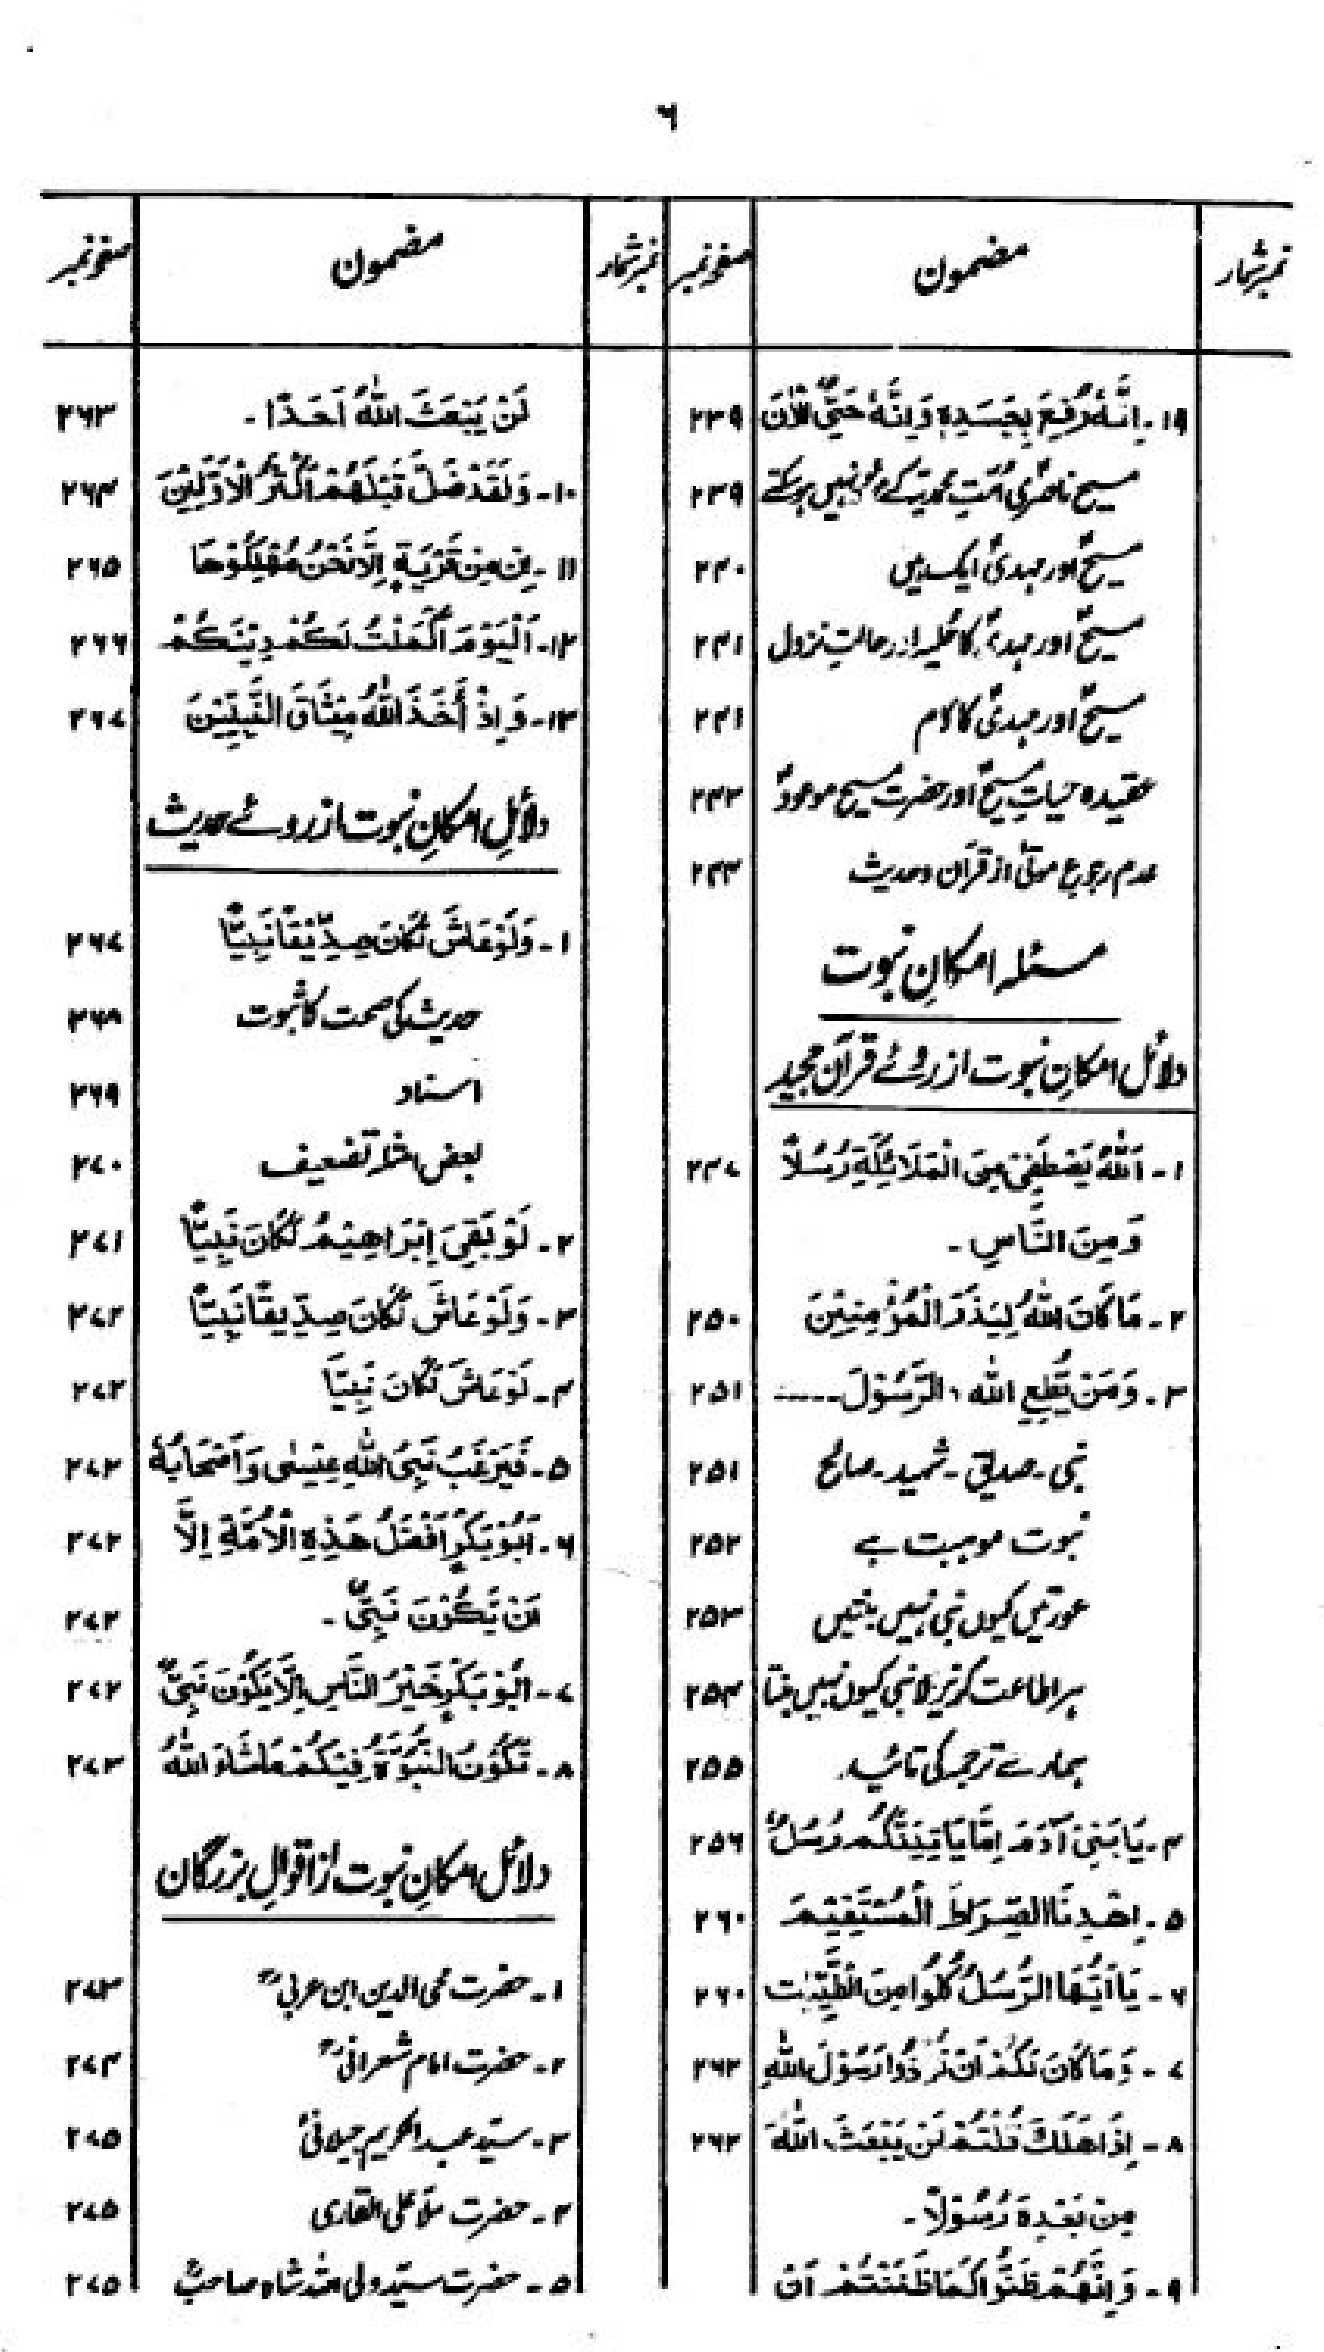 ۶
نمبر شمار مضمون صفحہ نمبر
۱۹۔ اِنَّہٗ رُفِعَ بِجَسَدِہٖ وَ اِنَّہٗ حَیٌّ الْاٰنَ ۲۳۹
مسیح ناصری اُمّتِ محمدیہ کے نہیں ہو سکتے ۲۳۹
مسیحؑ اور مہدیؑ ایک ہیں ۲۴۰
مسیحؑ اور مہدیؑ کا حُلیہ اور حالتِ نزول ۲۴۱
مسیحؑ اور مہدیؑ کا کام ۲۴۱
عقیدہ حیاتِ مسیحؑ اور حضرت مسیح موعودؑ ۲۴۲
عدم رجوع موتٰی از قرآن و حدیث ۲۴۳
مسئلہ امکانِ نبوت
دلائل امکانِ نبوت از روئے قرآن مجید
۱۔ اَللّٰہُ یَصْطَفِیْ مِنَ الْمَلَائِکَۃِ رُسُلًا ۲۴۷
وَ مِنَ النَّاسِ۔
۲۔ مَا کَانَ اللّٰہُ لِیَذَرَ الْمُؤْمِنِیْنَ ۲۵۰
۳۔ وَ مَنْ یُّطِعِ اللّٰہَ وَ الرَّسُوْلَ ..... ۲۵۱
نبی۔ صدیق۔ شہید۔ صالح ۲۵۱
نبوت موہبت ہے ۲۵۲
عورتیں کیوں نبی نہیں بنتیں ۲۵۳
ہر اطاعت کرنیوالا نبی کیوں نہیں بنتا ۲۵۴
ہمارے ترجمہ کی تائید ۲۵۵
۴۔ یَا بَنِیْ آدَمَ اِمَّا یَاْتِیَنَّکُمْ رُسُلٌ ۲۵۶
۵۔ اِھْدِنَا الصِّرَاطَ الْمُسْتَقِیْمَ ۲۶۰
۶۔ یَا اَیُّھَا الرُّسُلُ کُلُوْا مِنَ الطَّیِّبٰتِ ۲۶۰
۷۔ وَ مَا کَانَ لَکُمْ اَنْ تُؤْذُوْا رَسُوْلَ اللّٰہِ ۲۶۲
۸۔ اِذَا ھَلَکَ قُلْتُمْ لَنْ یَبْعَثَ اللّٰہُ ۲۶۲
مِنْ بَعْدِہٖ رَسُوْلًا۔
۹۔ وَ اِنَّھُمْ ظَنُّوْا کَمَا ظَنَنْتُمْ اَنْ
نمبر شمار مضمون صفحہ نمبر
لَنْ یَبْعَثَ اللّٰہُ اَحَدًا۔ ۲۶۳
۱۰۔ وَ لَقَدْ ضَلَّ قَبْلَھُمْ اَکْثَرُ الْاَوَّلِیْنَ ۲۶۴
۱۱۔ اِنْ مِنْ قَرْیَۃٍ اِلَّا نَحْنُ مُھْلِکُوْھَا ۲۶۵
۱۲۔ اَلْیَوْمَ اَکْمَلْتُ لَکُمْ دِیْنَکُمْ ۲۶۶
۱۳۔ وَ اِذْ أَخَذَ اللّٰہُ مِیْثَاقَ النَّبِیِّیْنَ ۲۶۷
دلائلِ امکانِ نبوت از روئے حدیث
۱۔ وَ لَوْ عَاشَ لَکَانَ صِدِّیْقًا نَبِیًّا ۲۶۷
حدیث کی صحت کا ثبوت ۲۶۸
اسناد ۲۶۹
بعض تضعیف ۲۷۰
۲۔ لَوْ بَقِیَ اِبْرَاھِیْمُ لَکَانَ نَبِیًّا ۲۷۱
۳۔ وَ لَوْ عَاشَ لَکَانَ صِدِّیْقًا نَبِیًّا ۲۷۲
۴۔ لَوْ عَاشَ لَکَانَ نَبِیًّا ۲۷۲
۵۔ فَیَرْغَبُ نَبِیُّ اللّٰہِ عِیْسٰی وَ اَصْحَابُہٗ ۲۷۲
۶۔ اَبُوْ بَکْرٍ اَفْضَلُ ھٰذِہِ الْاُمَّۃِ اِلَّا ۲۷۲
اَنْ یَّکُوْنَ نَبِیٌّ۔ ۲۷۲
۷۔ اَبُوْ بَکْرٍ خَیْرُ النَّاسِ اِلَّا یَکُوْنَ نَبِیٌّ ۲۷۲
۸۔ تَکُوْنُ النُّبُوَّۃُ فِیْکُمْ مَا شَاءَ اللّٰہُ ۲۷۳
دلائل امکانِ نبوت از اقوالِ بزرگان
۱۔ حضرت محی الدین ابن عربیؒ ۲۷۳
۲۔ حضرت امام شعرانیؒ ۲۷۴
۳۔ سیّد عبد الکریم جیلانیؒ ۲۷۵
۴۔ حضرت ملّا علی القاری ۲۷۵
۵۔ حضرت سیّد ولی اللہ شاہ صاحبؒ ۲۷۵